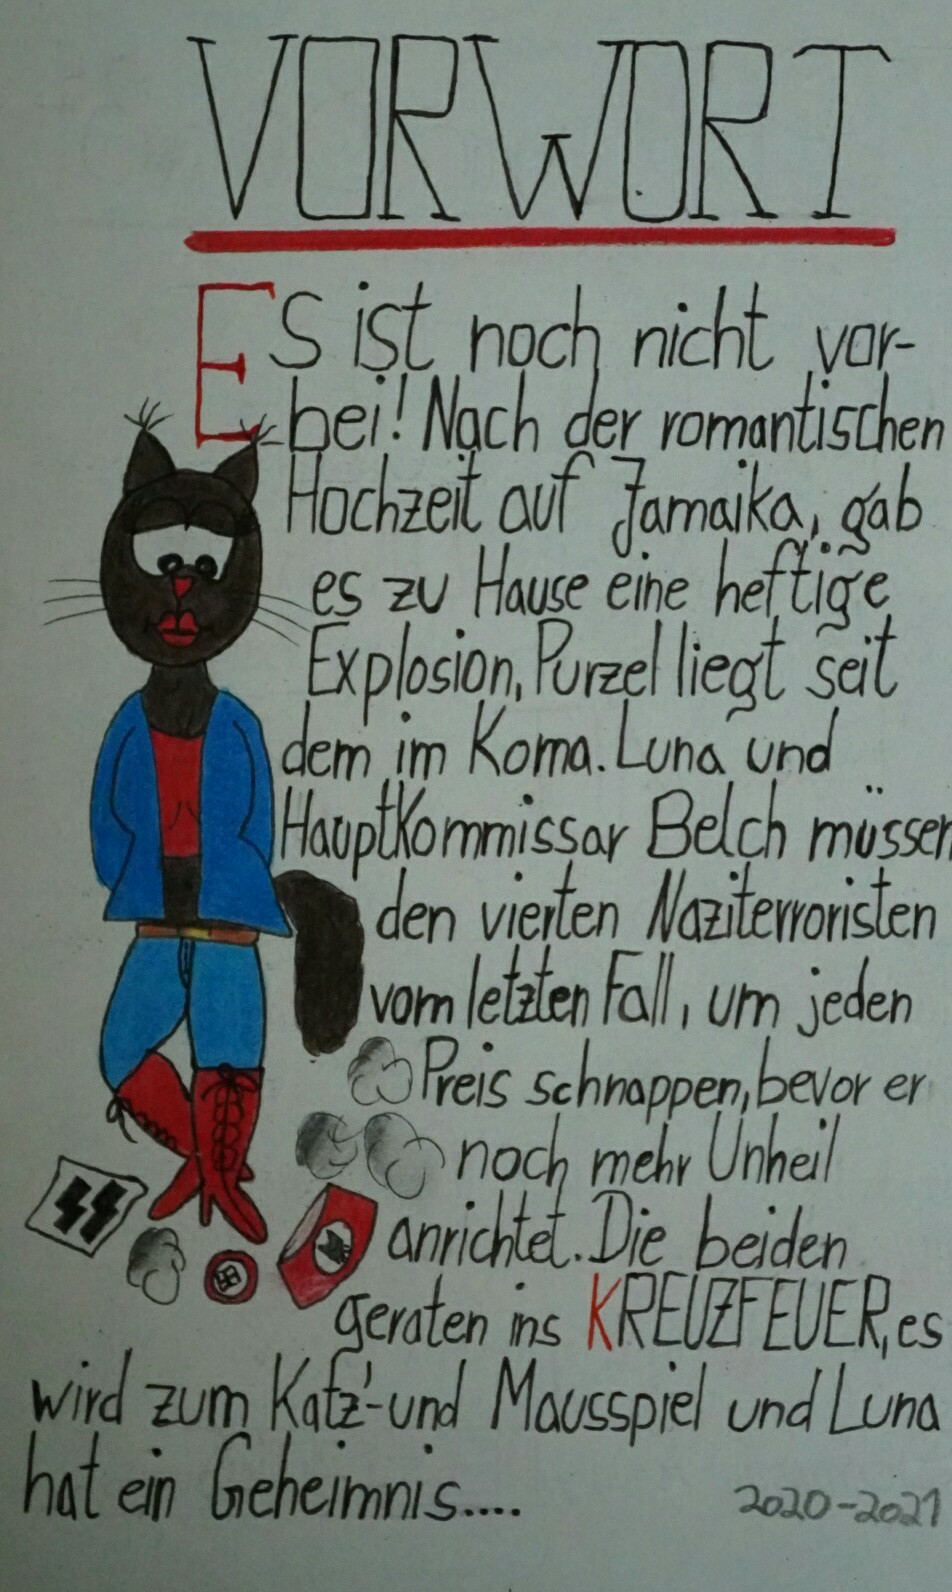 VORWORT
ES ist noch nicht vor-
bei! Nach der romantischen
Hochzeit auf Jamaika, gab
es zu Hause eine heftige
Explosion, Purzel liegt seit
dem im Koma. Luna und
Hauptkommissar Belch müssen
den vierten Naziterroristen
vom letzten Fall, um jeden
Preis schnappen, bevor er
noch mehr Unheil
anrichtet. Die beiden
geraten ins KREUZFEUER, es
wird zum Katz'-und Mausspiel und Luna
hat ein Geheimnis....
2020-2021